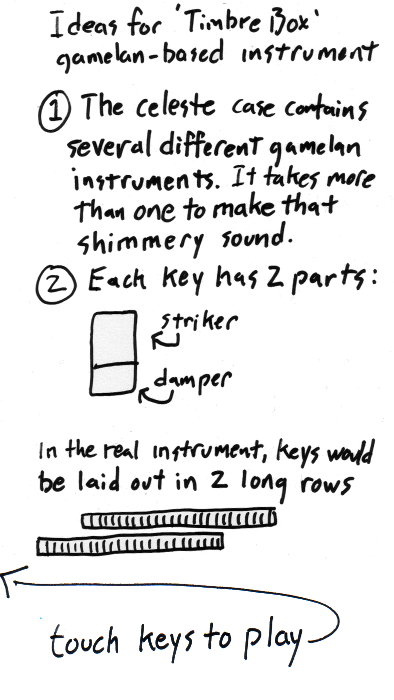 Ideas for 'Timbre Box'
gamelan-based instrument
① The celeste case contains
several different gamelan
instruments. It takes more
than one to make that
shimmery sound.
② Each key has 2 parts:
striker
damper
In the real instrument, keys would
be laid out in 2 long rows
touch keys to play